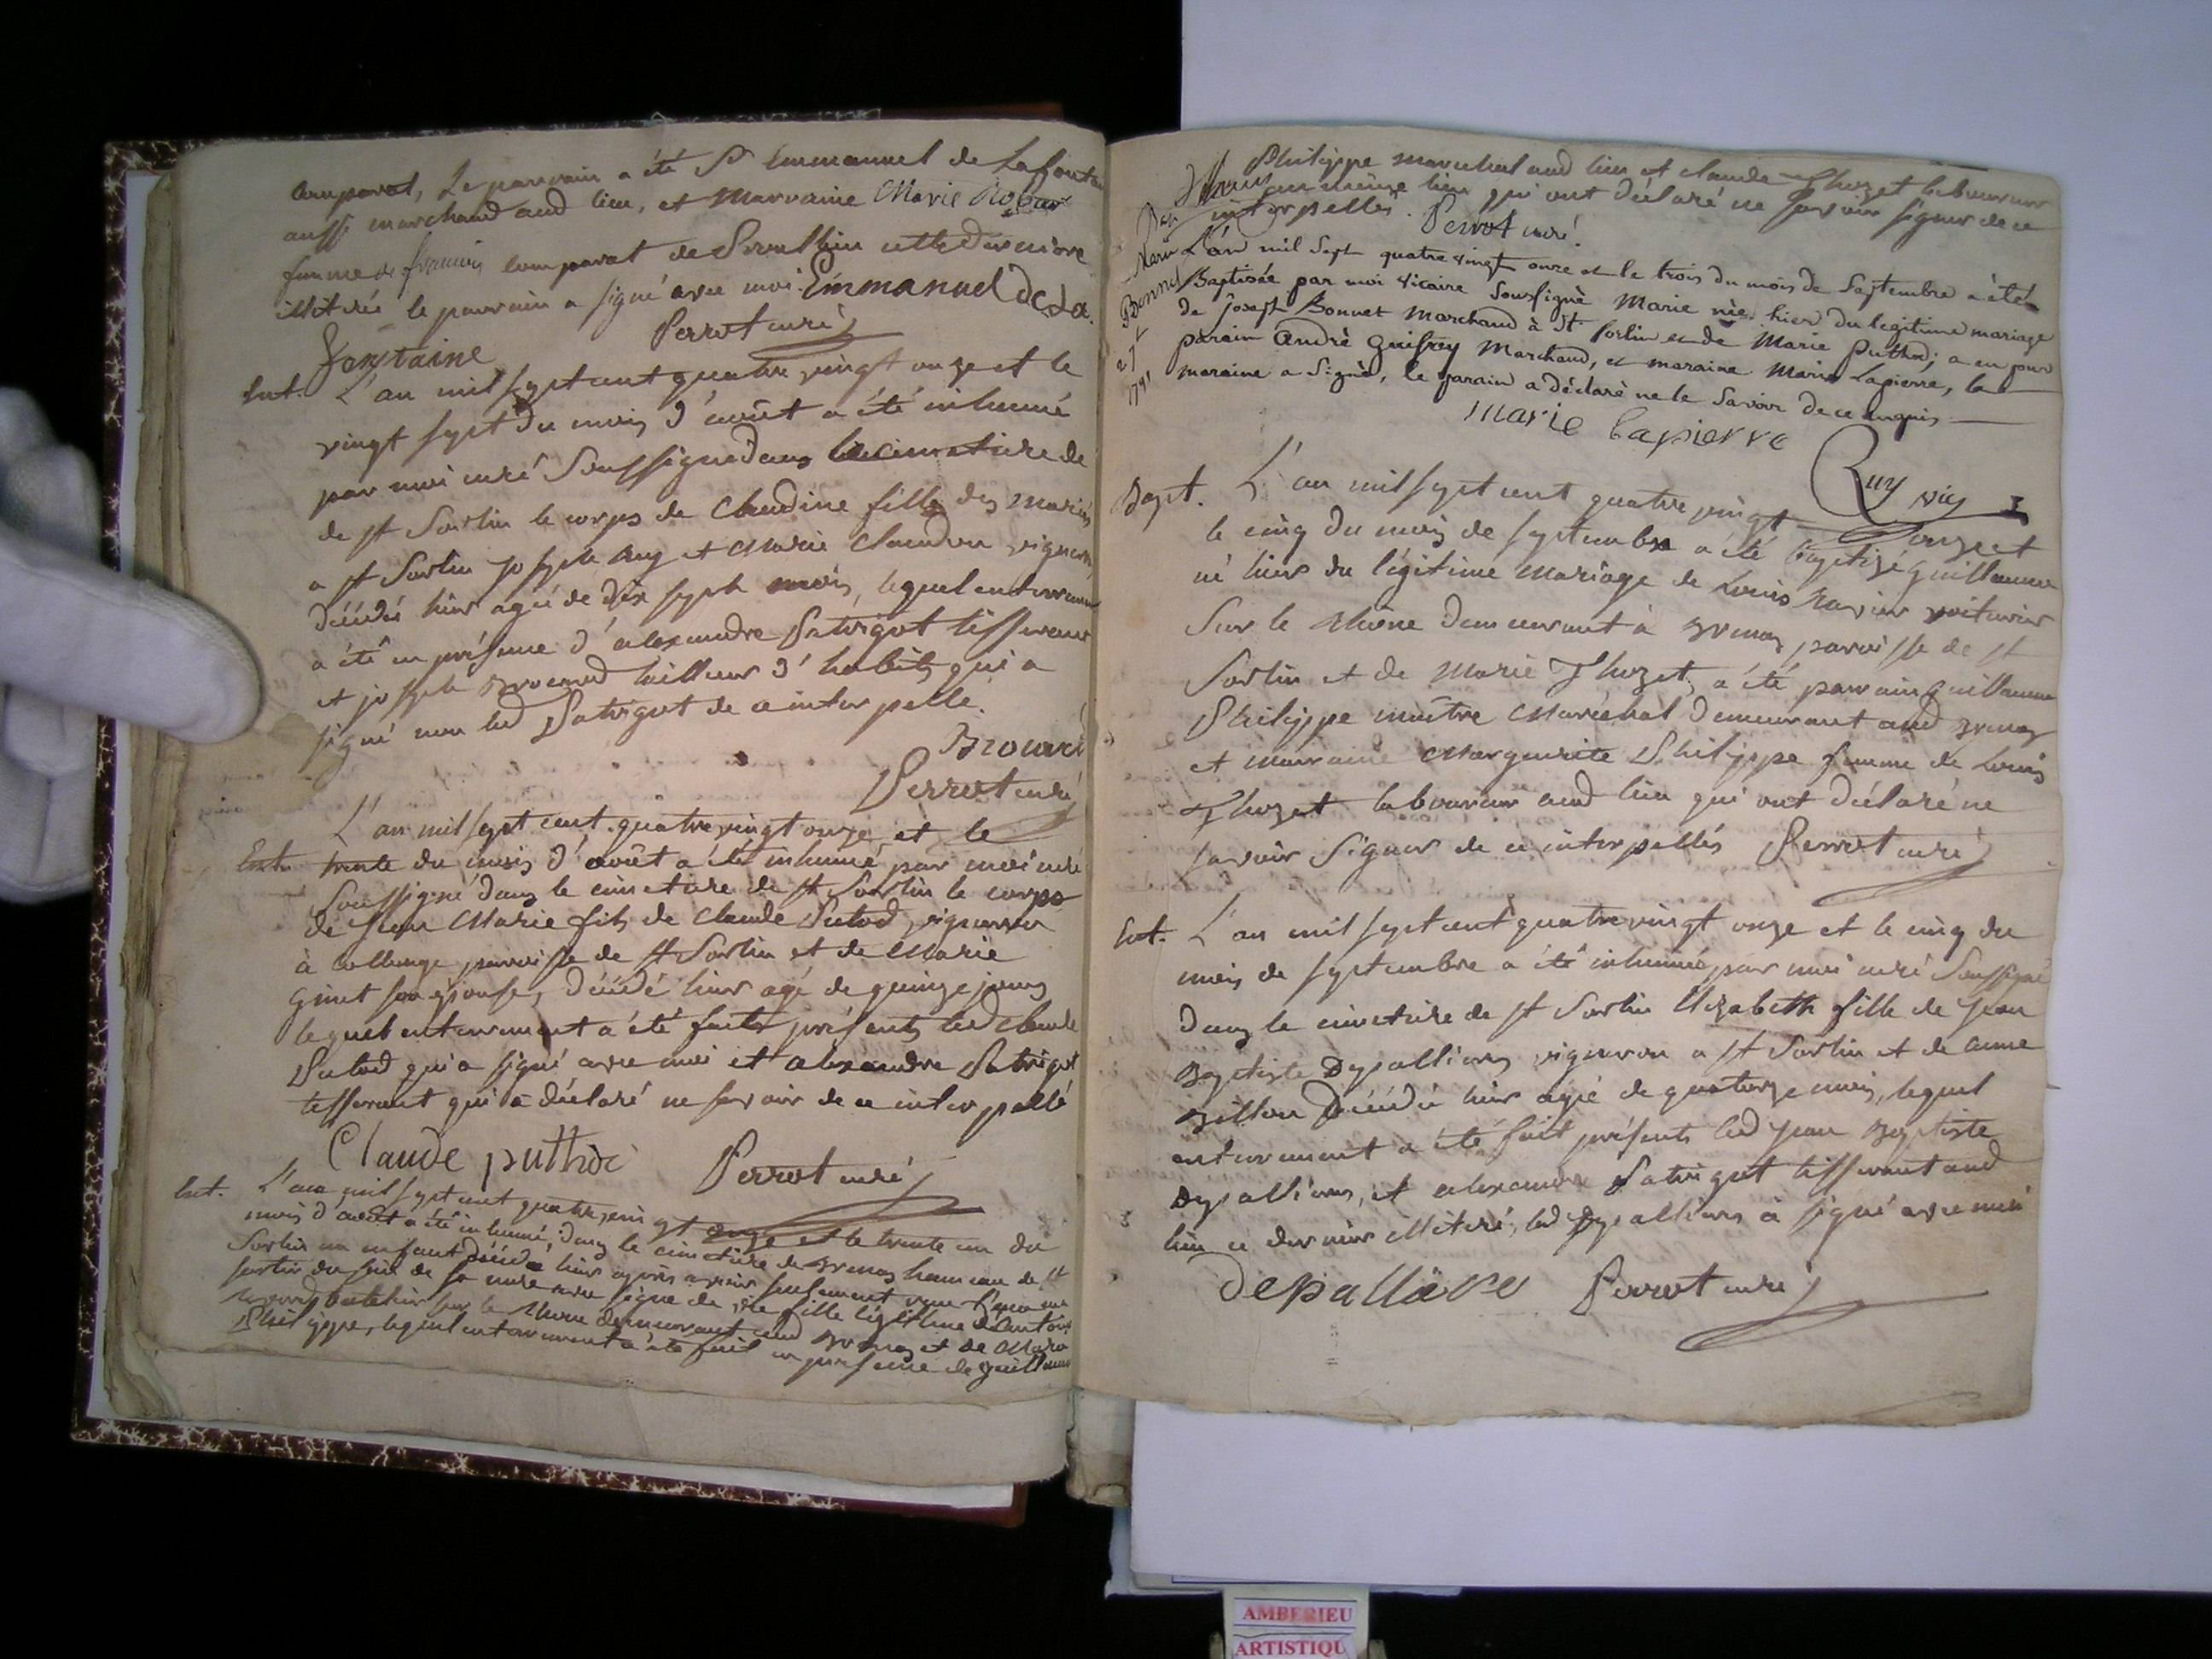 Comparat, Le parrain a été Sr Emmanuel de Lafontai
aussi marchand aud lieu, et Marraine Marie
femme de françois Comparat de Soulhin cette derniere
illitérée le parrain a signé avec moi. Emmanuel De La.
fontaine Perrot curé
Ent. L'an mil sept cent quatre vingt onze et le
vingt sept du mois d'août a été inhumé
par moi curé Soussigné dans le cimetière de
de st Sorlin le corps de Claudine fille des mariés
a st Sorlin joseph Ruy et Marie Claudon vigneron
décédée hier agée de dix sept mois, lequel enterrement
a été en présence d'alexandre Patrigot tisserant
et joseph Brouard tailleur d'habits qui a
signé non led Patrigot de ce interpellé.
Brouard
Perrot curé
L'an mil sept cent quatre vingt onze, et le
Ent. trente du mois d'août a été inhumé par moi curé
Soussigné dans le cimetière de st Sorlin le corps
de jean Marie fils de Claude Putod vigneron
à Collonge paroisse de st Sorlin et de Marie
ginet son épouse, décédé hier agé de quinze jours
lequel enterrement a été fait présents led Claude
Putod qui a signé avec moi et alexandre Patrigot
tisserant qui a déclaré ne savoir de ce interpellé
Claude puthod Perrot curé
Ent. L'an mil sept cent quatre vingt onze et le trente un du
mois d'août a été inhumé, dans le cimetière de hameau de st
Sorlin un enfant décédé hier après avoir
sortir du sein de sa mere avec signe de vie fille légitime d'Antoine
batelier sur le Rhone demeurant aud et de Marie
Philippe, lequel enterrement a été fait en presence de guillaume
Philippe marechal aud lieu et claude Thozet laboureur
au même lieu qui ont déclaré ne savoir signer de ce
interpellés. Perrot curé.
Bap
Marie L'an mil Sept quatre vingt onze et le trois du mois de Septembre a été
Bonnet Baptisée par moi vicaire Soussigné Marie née hier du legitime mariage
de Joseph Bonnet Marchand à St Sorlin et de Marie Puthod; a eu pour
parain André Guifrey Marchand, et maraine Marie Lapierre, la
1791 maraine a Signé, le parain a déclaré ne le Savoir de ce enquis
Marie Lapierre
Ruy vic
Bapt. L'an mil sept cent quatre vingt onze et
le cinq du mois de septembre a été baptizé guillaume
né hier du légitime mariage de Louis Ravier voiturier
Sur le Rhône demeurant à paroisse de st
Sorlin et de Marie Thozet, a été parrain guillaume
Philippe maître Maréchal demeurant aud
et marraine Marguerite Philippe femme de Louis
Thozet laboureur aud lieu qui ont déclaré ne
savoir Signer de ce interpellés Perrot curé
Ent. L'an mil sept cent quatre vingt onze et le cinq du
mois de septembre a été inhumée par moi curé Soussigné
dans le cimetière de st Sorlin Elizabeth fille de jean
Baptiste Depallieres vigneron a st Sorlin et de anne
Billon décédée hier agée de quatorze mois, lequel
enterrement a été fait présents led jean Baptiste
Depallieres, et alexandre Patrigot tisserant aud
lieu ce dernier illitéré, led Depallieres a signé avec moi
Depalliere Perrot curé
AMBERIEU
ARTISTIQU